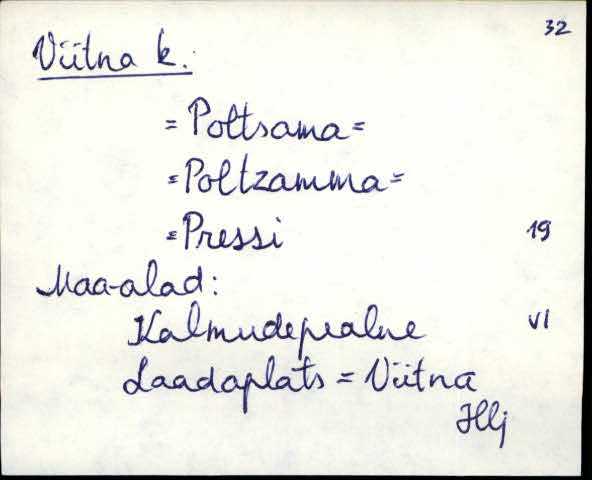 32
Viitna k.
= Poltsama =
= Poltzamma =
= Pressi 19
Maa-alad:
Kalmudepealne VI
Laadaplats = Viitna
Hlj